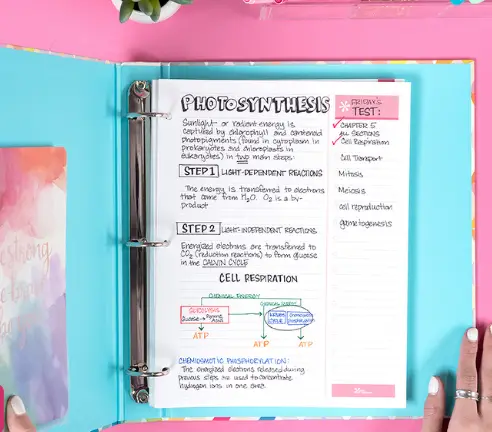 PHOTOSYNTHESIS
Sunlight or radiant energy is
captured by chlorophyll and
photopigments (found in cytoplasm in
prokaryotes and chloroplasts in
eukaryotes) in two main steps:
STEP 1 LIGHT-DEPENDENT REACTIONS
The energy is transferred to electrons
that come from H2O. O2 is a by-
product
STEP 2 LIGHT-INDEPENDENT REACTIONS
Energized electrons are transferred to
CO2 (reduction reactions) to form glucose
in the CALVIN CYCLE
CELL RESPIRATION
CHEMICAL ENERGY
CHEMICAL ENERGY
GLYCOLYSIS
Glucose → Pyruvic
Acid
KREBS
CYCLE
ATP
ATP
ATP
CHEMIOSMOTIC PHOSPHORYLATION:
The energized electrons released during
previous steps are used to concentrate
hydrogen ions in one area.
FRIDAY'S
TEST:
CHAPTER 5
SECTIONS
Cell Respiration
Cell Transport
Mitosis
Meiosis
cell reproduction
gametogenesis
strong